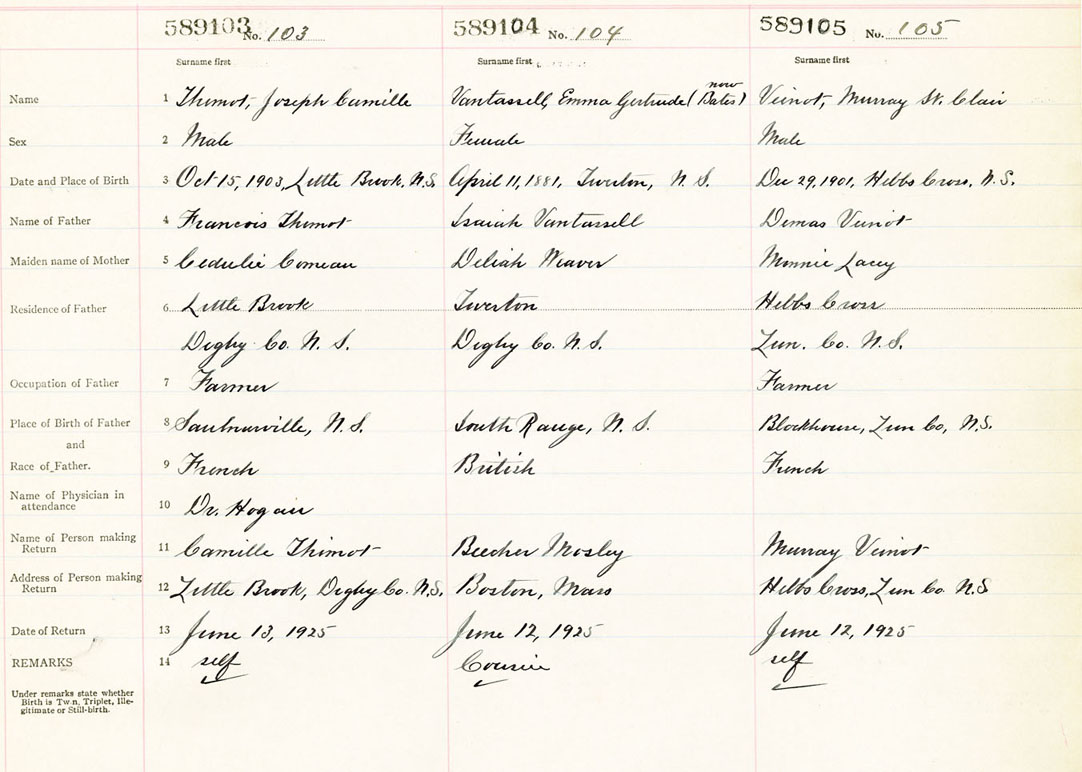 589103 No. 103 589104 No. 104 589105 No. 105
Surname first Surname first Surname first
Name 1 Thimot, Joseph Camille Vantassell, Emma Gertrude (now Bates) Veinot, Murray St. Clair
Sex 2 Male Female Male
Date and Place of Birth 3 Oct 15, 1903, Little Brook, N.S. April 11, 1881, Tiverton, N.S. Dec 29, 1901, Hebbs Cross, N.S.
Name of Father 4 Francois Thimot Isaiah Vantassell Demas Veinot
Maiden name of Mother 5 Cedulie Comeau Deliah Weaver Minnie Lacey
Residence of Father 6 Little Brook Tiverton Hebbs Cross
Digby Co. N.S. Digby Co. N.S. Lun. Co. N.S.
Occupation of Father 7 Farmer Farmer
Place of Birth of Father 8 Saulnierville, N.S. South Range, N.S. Blockhouse, Lun Co, N.S.
and
Race of Father. 9 French British French
Name of Physician in
attendance 10 Dr. Hogan
Name of Person making
Return 11 Camille Thimot Beecher Mosley Murray Veinot
Address of Person making
Return 12 Little Brook, Digby Co. N.S. Boston, Mass Hebbs Cross, Lun Co. N.S
Date of Return 13 June 13, 1925 June 12, 1925 June 12, 1925
REMARKS 14 self Cousin self
Under remarks state whether
Birth is Twin, Triplet, Ille-
gitimate or Still-birth.